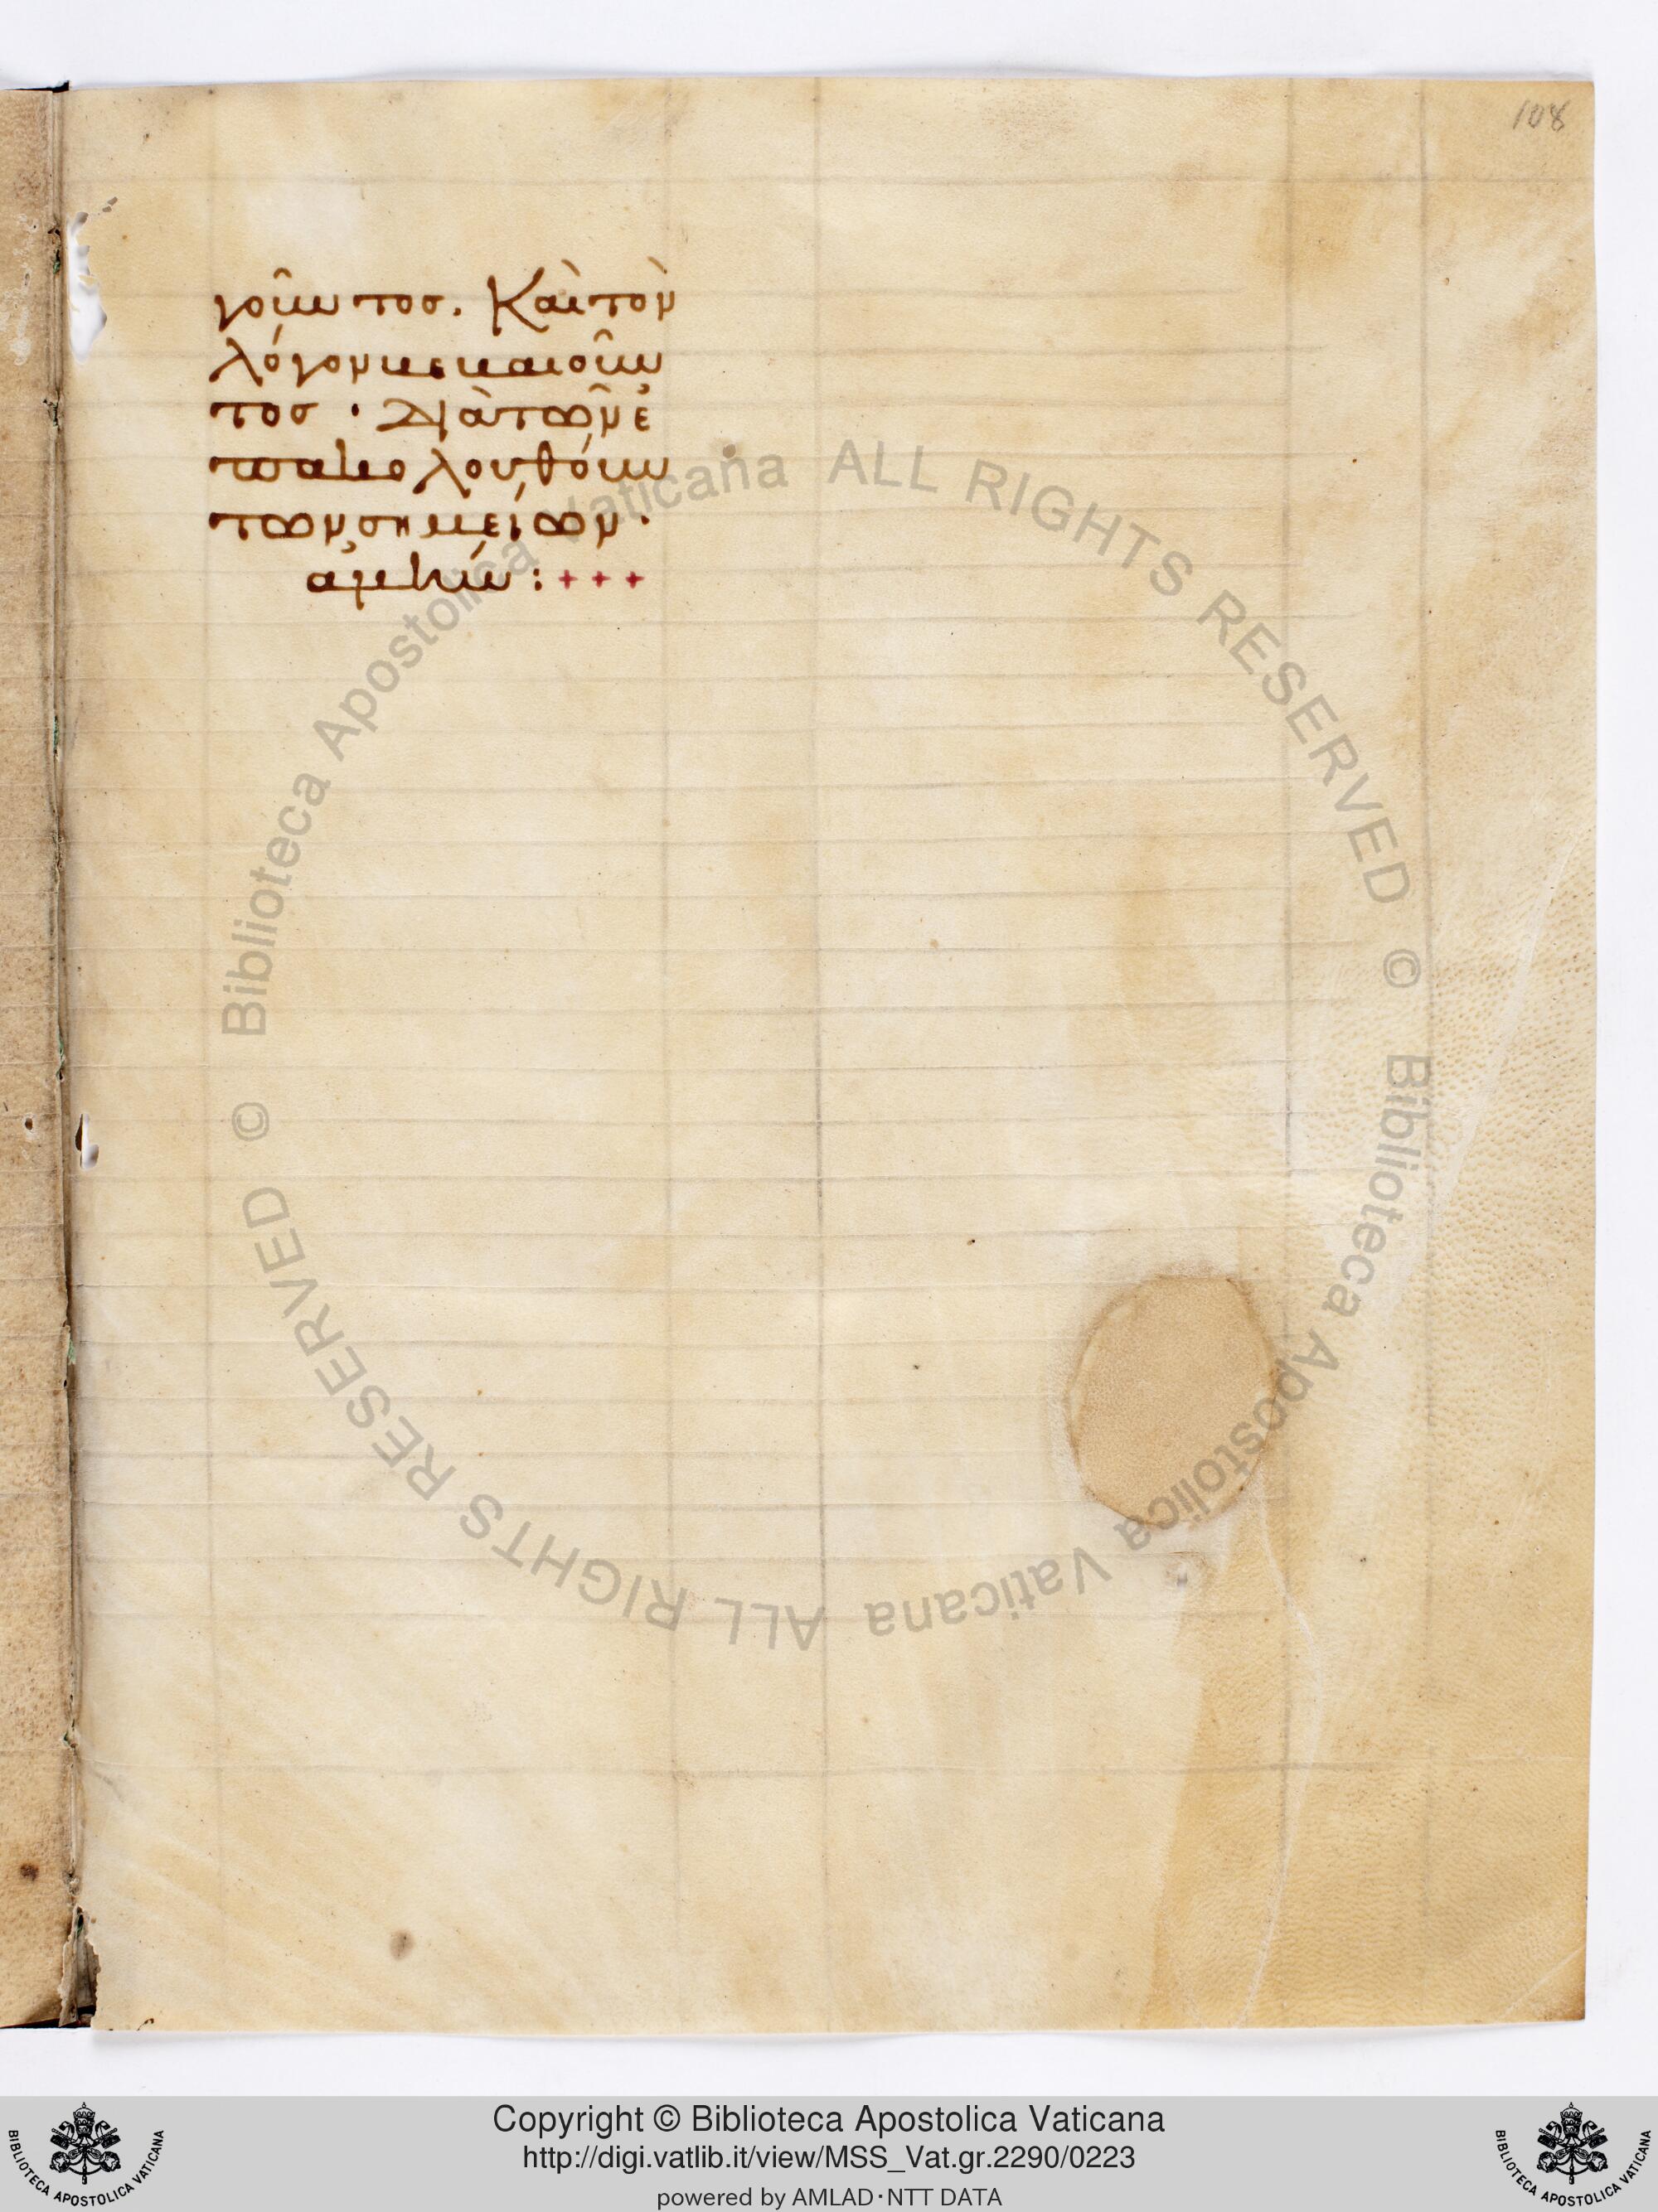 108
γοῦντος. Καὶ τὸν
λόγον βεβαιοῦν
τος · διὰ τῶν ἐ
πακολουθούν
των σημείων ·
ἀμήν : + + +
© Biblioteca Apostolica Vaticana ALL RIGHTS RESERVED
© Biblioteca Apostolica Vaticana ALL RIGHTS RESERVED
Copyright © Biblioteca Apostolica Vaticana
http://digi.vatlib.it/view/MSS_Vat.gr.2290/0223
powered by AMLAD·NTT DATA
BIBLIOTECA APOSTOLICA VATICANA
BIBLIOTECA APOSTOLICA VATICANA